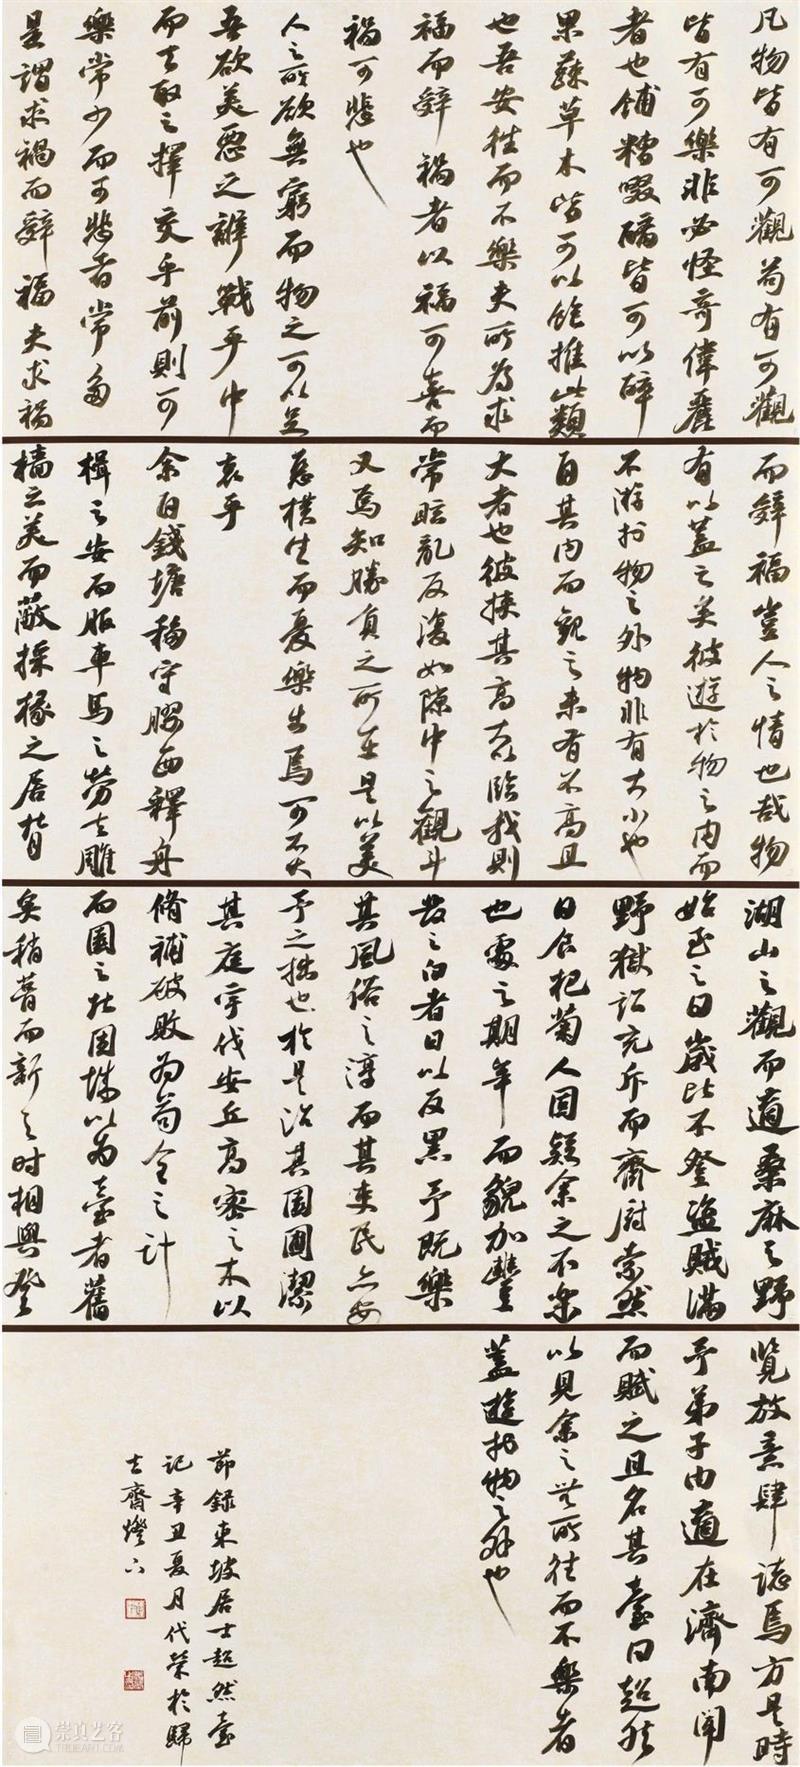 凡物皆有可觀苟有可觀
皆有可樂非必怪奇偉麗
者也餔糟啜醨皆可以醉
果蔬草木皆可以飽推此類
也吾安往而不樂夫所為求
福而辭禍者以福可喜而
禍可悲也
人之所欲無窮而物之可以足
吾欲美惡之辨戰乎中
而去取之擇交乎前則可
樂常少而可悲者常多
是謂求禍而辭福夫求禍
而辭福豈人之情也哉物
有以蓋之矣彼遊於物之內而
不游於物之外物非有大小也
自其內而觀之未有不高且
大者也彼挾其高大以臨我則
常眩亂反復如隙中之觀斗
又焉知勝負之所在是以美
惡橫生而憂樂出焉可不大
哀乎
余自錢塘移守膠西釋舟
楫之安而服車馬之勞去雕
牆之美而蔽採椽之居背
湖山之觀而適桑麻之野
始至之日歲比不登盜賊滿
野獄訟充斥而齋廚索然
日食杞菊人固疑余之不樂
也處之期年而貌加豐
髮之白者日以反黑予既樂
其風俗之淳而其吏民亦安
予之拙也於是治其園圃潔
其庭宇伐安丘高密之木以
脩補破敗為苟全之計
而園之北因城以為臺者舊
矣稍葺而新之時相與登
覽放意肆志焉方是時
予弟子由適在濟南聞
而賦之且名其臺曰超然
以見余之無所往而不樂者
蓋遊於物之外也
節錄東坡居士超然臺
記辛丑夏月代榮於歸
去齋燈下
崇真艺客
TRUEART.COM